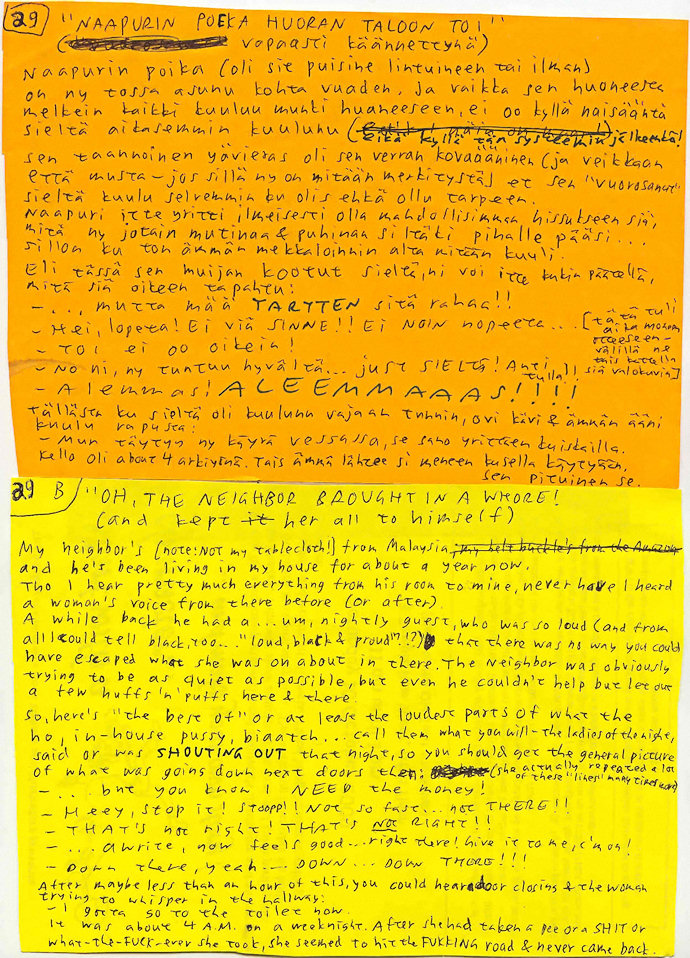 29 "NAAPURIN POIKA HUORAN TALOON TOI"
( vapaasti käännettynä)
Naapurin poika (oli sit puisine lintuineen tai ilman)
on ny tossa asunu kohta vuaden, ja vaikka sen huoneesta
melkein kaikki kuuluu munki huaneeseen, ei oo kyllä naisääntä
sieltä aikasemmin kuulunu (
eikä kyllä tän systeemin jälkeenkä!
sen taannoinen yäviaras oli sen verran kovaääninen (ja veikkaan
että musta – jos sillä ny on mitään merkitystä) et sen "vuorosanat"
sieltä kuulu selvemmin ku olis ehkä ollu tarpeen.
Naapuri itte yritti ilmeisesti olla mahdollisimman hissukseen siä,
mitä ny jotain mutinaa & puhinaa siltäki pihalle pääsi...
sillon ku ton ämmän mekkaloinnin alta mitään kuuli.
Eli tässä sen muijan kootut sieltä, ni voi itte kukin päätellä,
mitä siä oikeen tapahtu:
– ..., mutta mää TARTTEN sitä rahaa!!
– Hei, lopeta! Ei viä SINNE!! Ei NOIN nopeeta... [tätä tuli
aika monen
otteeseen –
välillä ne
tais katella
siä valokuvia]
– TOI ei oo oikein!
– No ni, ny tuntuu hyvältä... just SIELTÄ! Anti
tulla!
– Alemmas! ALEEMMAAAS!!!!
Tällästä ku sieltä oli kuulunu vajaan tunnin, ovi kävi & ämmän ääni
kuulu rapusta:
– Mun täytyy ny käyrä vessassa, se sano yrittäen kuiskailla.
Kello oli about 4 arkiyönä. Tais ämmä lähtee si meneen kusella käytyään.
sen pituinen se.
29 B "OH, THE NEIGHBOR BROUGHT IN A WHORE!
(and kept it her all to himself)
My neighbor's [note: NOT my tablecloth!] from Malaysia, my belt buckle's from the Amazon
and he's been living in my house for about a year now.
Tho I hear pretty much everything from his room to mine, never have I heard
a woman's voice from there before (or after).
A while back he had a... um, nightly guest, who was so loud (and from
all I could tell black, too... "loud, black & proud"?!?) that there was no way you could
have escaped what she was on about in there. The Neighbor was obviously
trying to be as quiet as possible, but even he couldn't help but let out
a few huffs 'n' puffs here & there.
So, here's "the best of" or at least the loudest parts of what the
ho, in-house pussy, biaatch... call them what you will – the ladies of the nighe,
said or was SHOUTING OUT that night, so you should get the general picture
of what was going down next doors then: (she actually repeated a lot
of these "lines" many times over)
– ... but you know I NEED the money!
– Heey, stop it! Stoopp!! Not so fast... not THERE!!
– THAT's not right! THAT's NOT RIGHT!!
– ... awrite, now feels good... right there! Give it to me, c'mon!
– Down there, yeah – DOWN... DOWN THERE!!!
After maybe less than an hour of this, you could hear a door closing & the woman
trying to whisper in the hallway:
– I gotta go to the toilet now.
It was about 4 A.M. on a weeknight. After she had taken a pee or a SHIT or
what-the-FUCK-ever she took, she seemed to hit the FUKKING road & never came back.